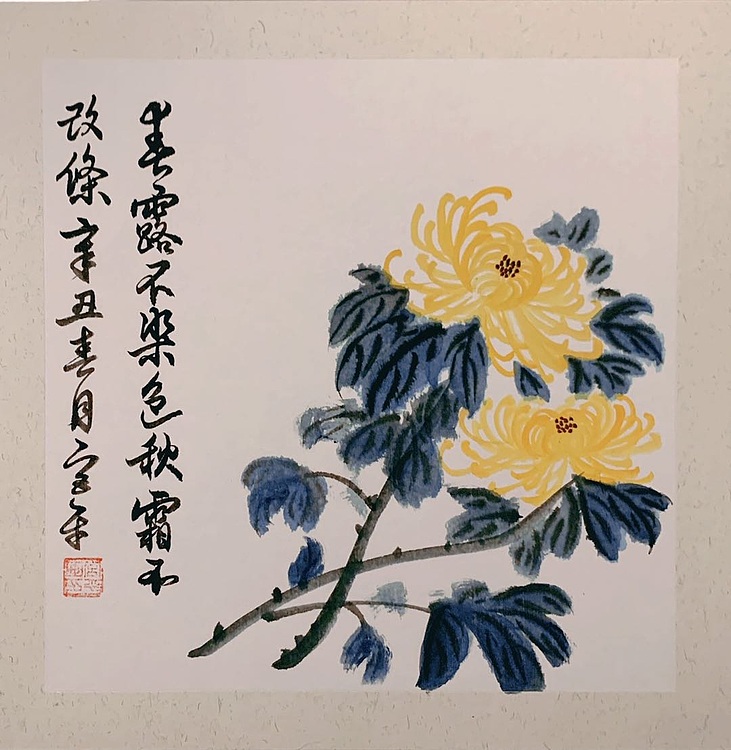 春露不染色秋霜不
改條辛丑春月